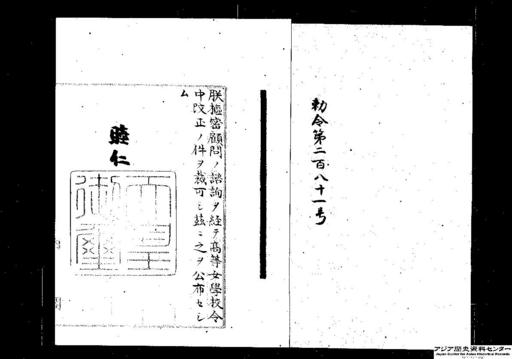 勅令第二百八十一号
朕枢密顧問ノ諮詢ヲ経テ高等女学校令
中改正ノ件ヲ裁可シ茲ニ之ヲ公布セシ
ム
睦仁
天皇御璽
アジア歴史資料センター
Japan Center for Asian Historical Records